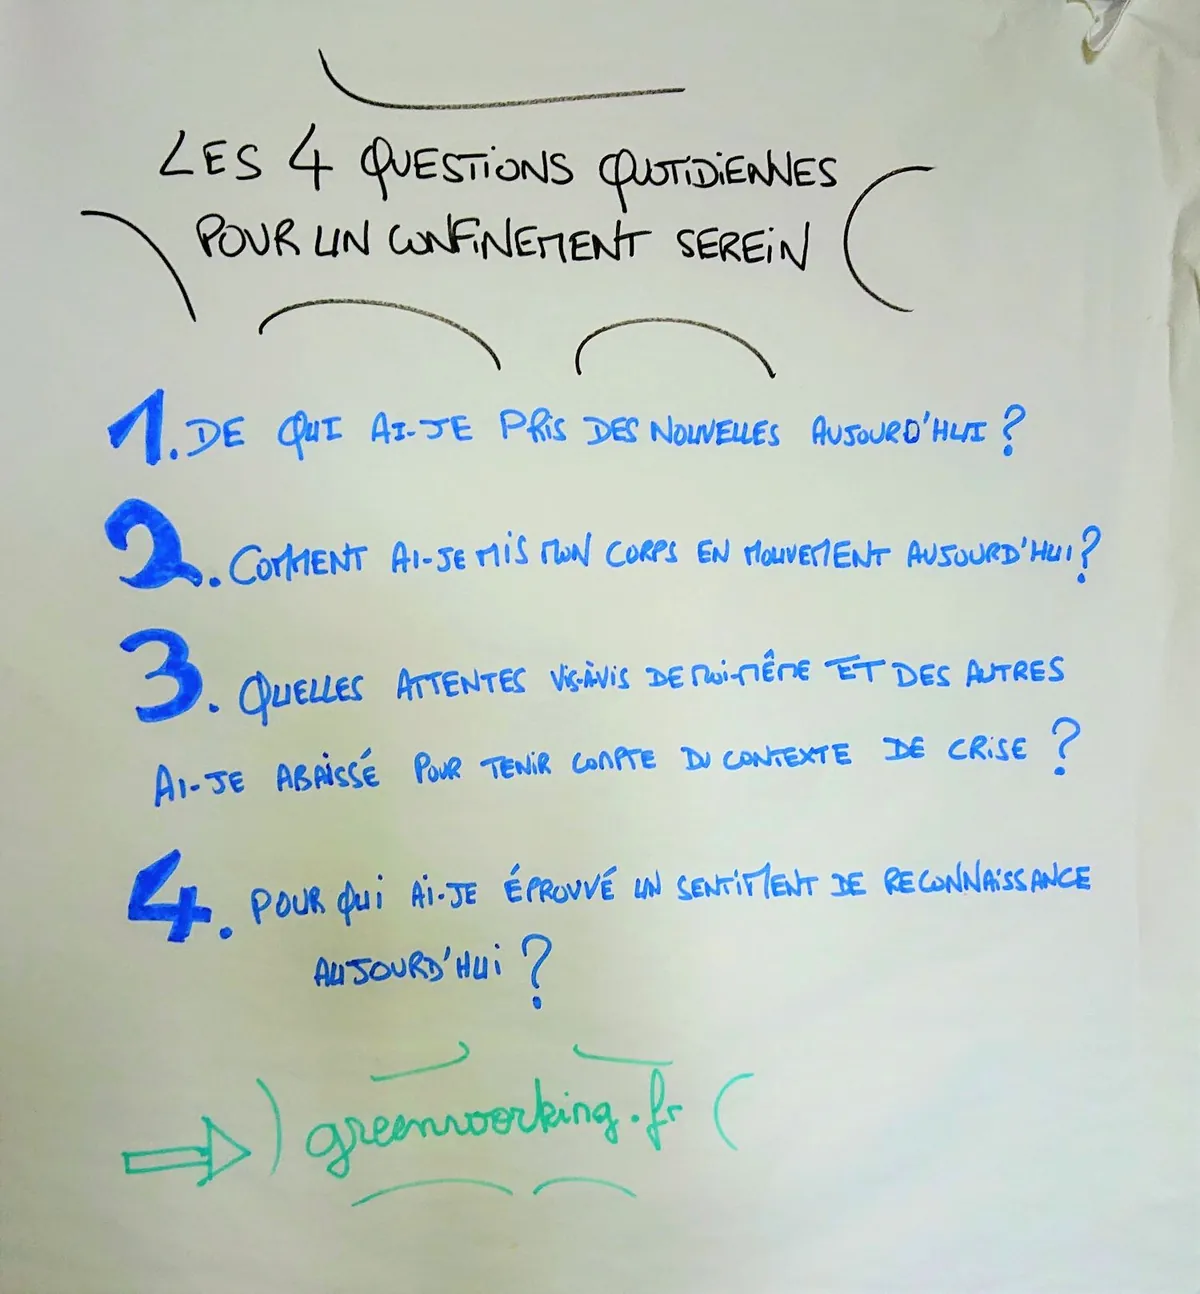 LES 4 QUESTIONS QUOTIDIENNES
POUR UN CONFINEMENT SEREIN
1. DE QUI AI-JE PRIS DES NOUVELLES AUJOURD'HUI ?
2. COMMENT AI-JE MIS MON CORPS EN MOUVEMENT AUJOURD'HUI ?
3. QUELLES ATTENTES VIS-À-VIS DE MOI-MÊME ET DES AUTRES
AI-JE ABAISSÉ POUR TENIR COMPTE DU CONTEXTE DE CRISE ?
4. POUR QUI AI-JE ÉPROUVÉ UN SENTIMENT DE RECONNAISSANCE
AUJOURD'HUI ?
greenworking.fr